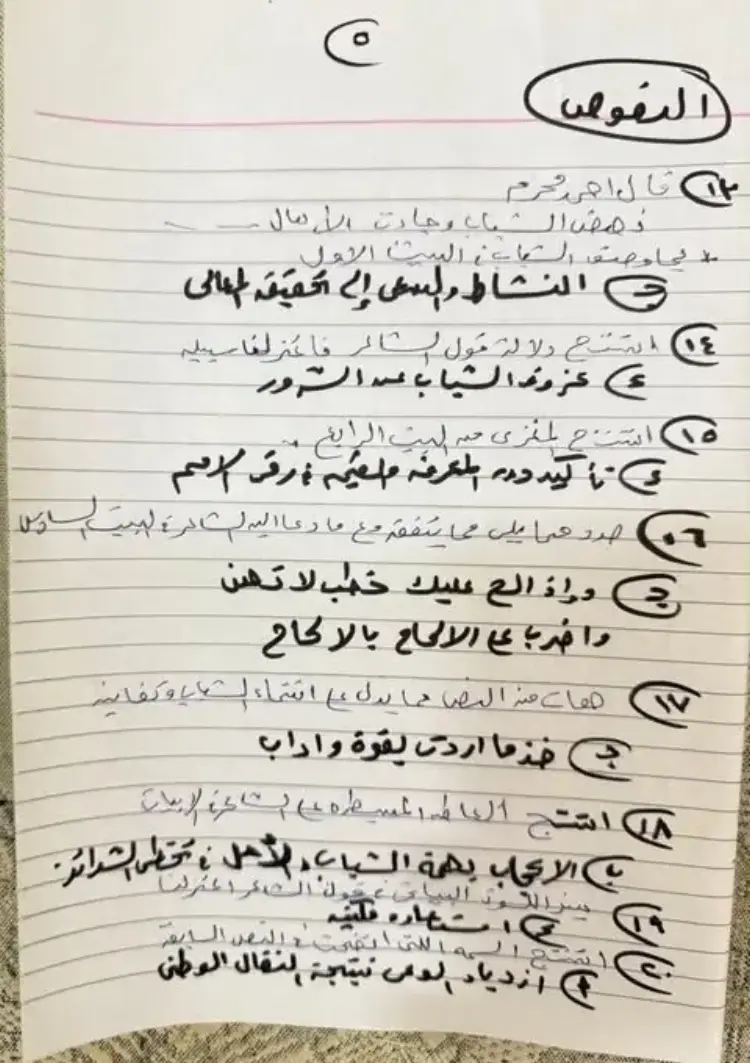 ٥
النصوص
١٣ قال احمد محرم
نهض الشباب وجادت الآمال
* بما وصف الشباب في البيت الاول
جـ النشاط والسعى إلى تحقيق المعالى
١٤ استنتج دلالة قول الشاعر
د عزوف الشباب عن الشرور
١٥ استنتج المغزى من البيت الرابع
د تأكيد دور المعرفة والقيم في رقى الامم
١٦ حدد مما يلى مما يتفق مع ما دعا اليه الشاعر في البيت السادس
جـ وإذا الح عليك خطب لا تهن
واضرب على الالحاح بالالحاح
١٧ هات من النص ما يدل على انتماء الشباب وكفاحه
جـ خذ ما اردت بقوة واداب
١٨ استنتج العاطفة المسيطرة على الشاعر في الابيات
ب الاعجاب بهمة الشباب والأمل في تخطى الشدائد
١٩ ميز اللون البيانى في قول الشاعر
جـ استعاره مكنيه
٢٠ استنتج السمه التى اتضحت في النص السابق
أ ازدياد الوعى نتيجة النضال الوطنى